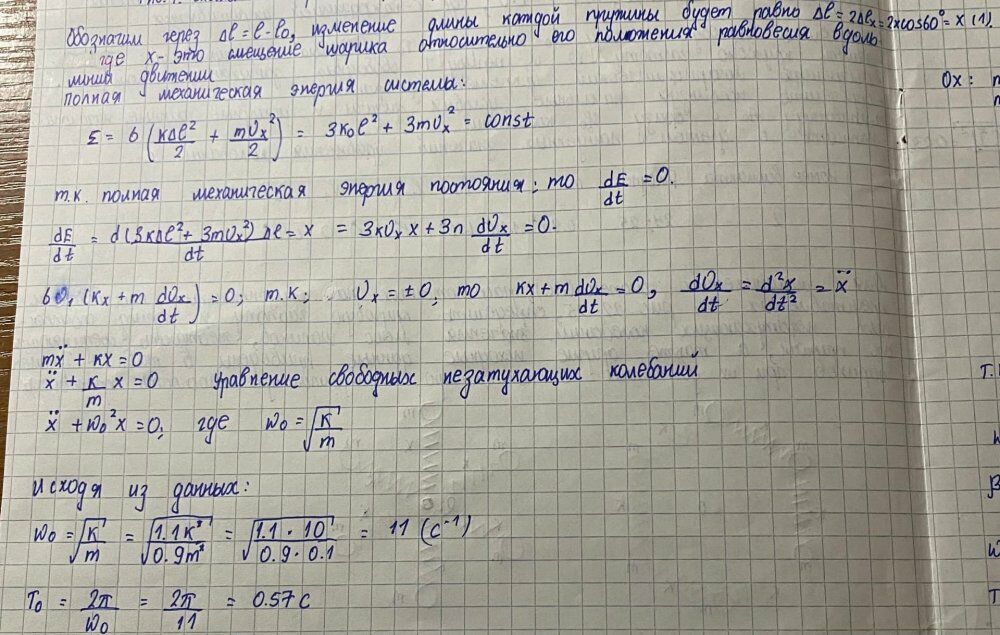 Обозначим через Δl = l - l₀, изменение длины каждой пружины будет равно Δl = 2Δlₓ = 2x cos60° = x (1).
где x - это смещение шарика относительно его положения равновесия вдоль
линии движении
Полная механическая энергия системы:
E = 6 (kΔl²/2 + mυₓ²/2) = 3k₀l² + 3mυₓ² = const
т.к. полная механическая энергия постоянна; то dE/dt = 0.
dE/dt = d(3kΔl² + 3mυₓ²)/dt Δl = x = 3kυₓ x + 3п dυₓ/dt = 0.
6υ, (kx + m dυₓ/dt) = 0; т.к; υₓ = ±0, то kx + m dυₓ/dt = 0, dυₓ/dt = d²x/dt² = ẍ
mẍ + kx = 0
ẍ + k/m x = 0 уравнение свободных незатухающих колебаний
ẍ + ω₀²x = 0; где ω₀ = √(k/m)
Исходя из данных:
ω₀ = √(k/m) = √(1.1k²/0.9m²) = √(1.1 · 10/0.9 · 0.1) = 11 (с⁻¹)
T₀ = 2π/ω₀ = 2π/11 = 0.57 с
Ox:
T.
β
ω
T